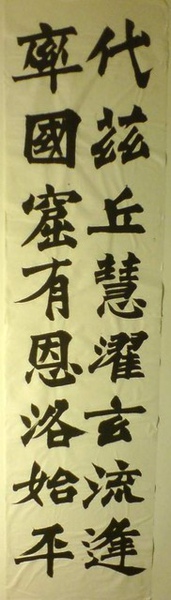 代茲丘慧濯玄流逢
率國窟有恩洛始平